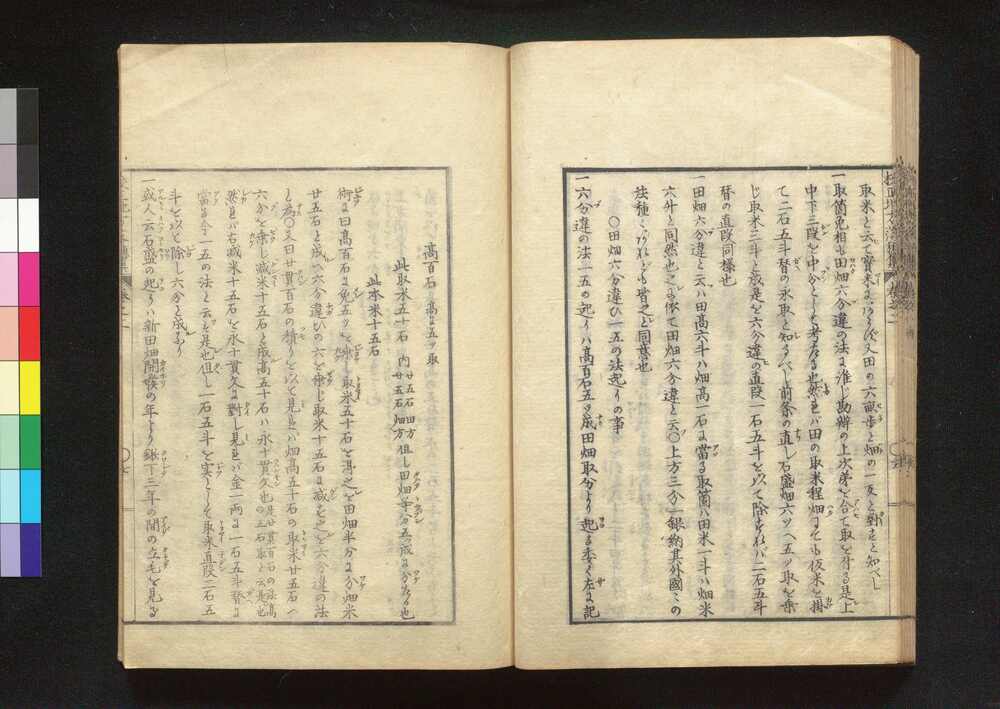 取米と云て實米はなし反又田の六畝歩と畑の一反と對すと知べし
一取箇免相は田畑六分違の法に准じ勘辨の上次㐧を合て取を付る是上
中下三段を中分として考たる也然れば田の取米程畑にても仮米を掛
て二石五斗替の永取と知るべし前条の直し石盛畑六ツへ五ツ取を乗
じ取米三斗と成是を六分違の直段一石五斗を以て除すれバ二石五斗
替の直段同様也
一田畑六分違と云ハ田高六斗ハ畑高一石に當る取箇ハ田米一斗ハ畑米
六升と同然也
依て田畑六分違と云〇上方三分一銀納其外國々の
法種々あれども皆之と同義也
〇田畑六分違ひ一五の法起りの事
一六分違の法一五の起りハ高百石五ツ成田畑取分より起る委く左に記
高百石 高に五ツ取
此取米五十石 内 廿五石 田方 廿五石 畑方 但し田畑等分五ツ成に分たる也
此本米十五石
術に曰高百石に免五ツを乗し取米五十石を得之を田畑半分に分畑米
廿五石と成六分違ひの六を乗じ取米十五石に減を也を六分違の法
と為〇又曰廿貫百石の積りを以て見れバ畑高五十石の取米廿五石へ
六分を乗し減米十五石と成高五十石ハ永十貫文也
然れバ右減米十五石を永十貫文に對し見れバ金一両に一石五斗替に
當る今一五の法と云是也但し一石五斗を実として取米直段二石五
斗を以て除し六分と成なり
一或人云石盛の起りハ新田畑開發の年より鍬下三年の間の立毛を見る